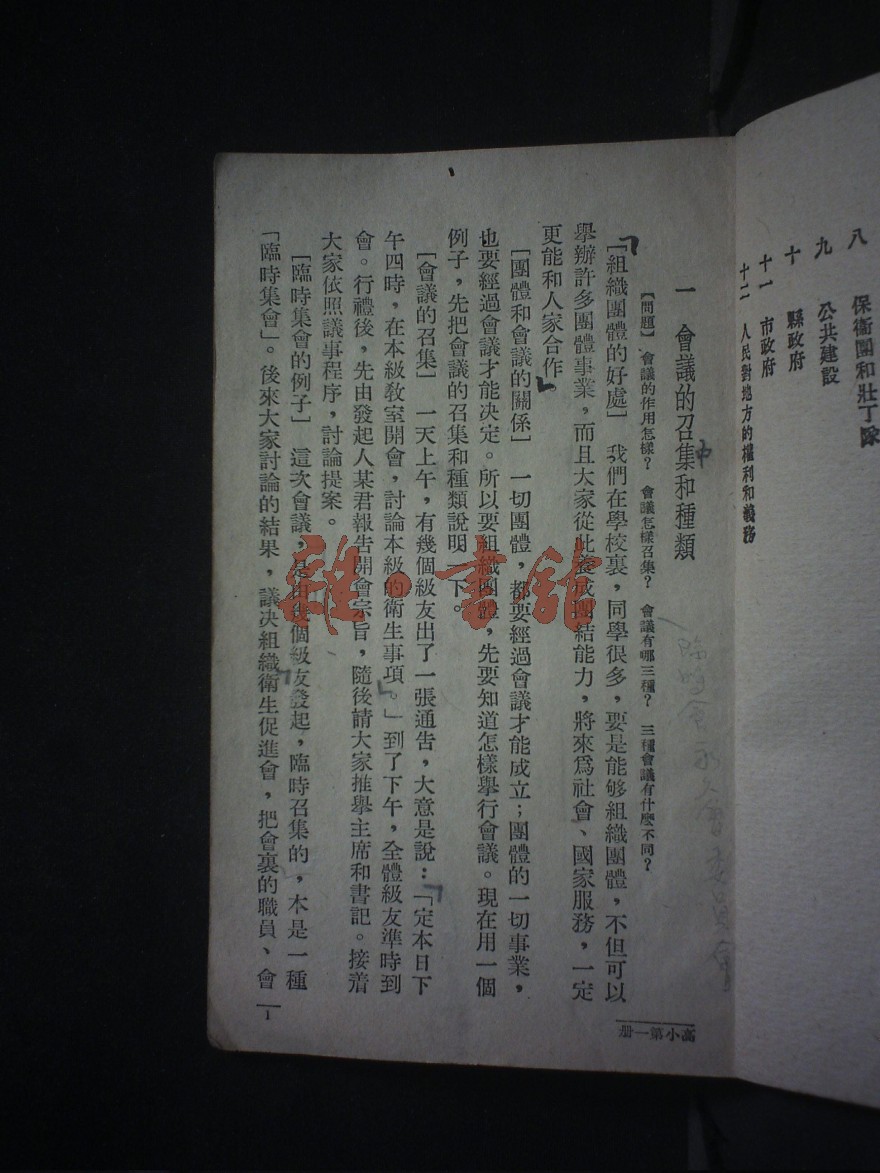 八　保衛團和壯丁隊
九　公共建設
十　縣政府
十一　市政府
十二　人民對地方的權利和義務
一　會議的召集和種類
［問題］會議的作用怎樣？　會議怎樣召集？　會議有哪三種？　三種會議有什麼不同？
［組織團體的好處］　我們在學校裏，同學很多，要是能够組織團體，不但可以
舉辦許多團體事業，而且大家從此養成團結能力，將來爲社會、國家服務，一定
更能和人家合作。
［團體和會議的關係］　一切團體，都要經過會議才能成立；團體的一切事業，
也要經過會議才能決定。所以要組織團體，先要知道怎樣舉行會議。現在用一個
例子，先把會議的召集和種類說明一下。
［會議的召集］　一天上午，有幾個級友出了一張通告，大意是說：「定本日下
午四時，在本級教室開會，討論本級的衛生事項。」到了下午，全體級友準時到
會。行禮後，先由發起人某君報告開會宗旨，隨後請大家推舉主席和書記。接着
大家依照議事程序，討論提案。
［臨時集會的例子］　這次會議，是由幾個級友發起，臨時召集的，本是一種
「臨時集會」。後來大家討論的結果，議決組織衛生促進會，把會裏的職員、會
高小第一册
1
雜·書館